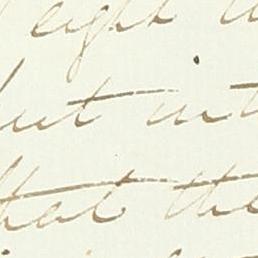 eight
but in
that the